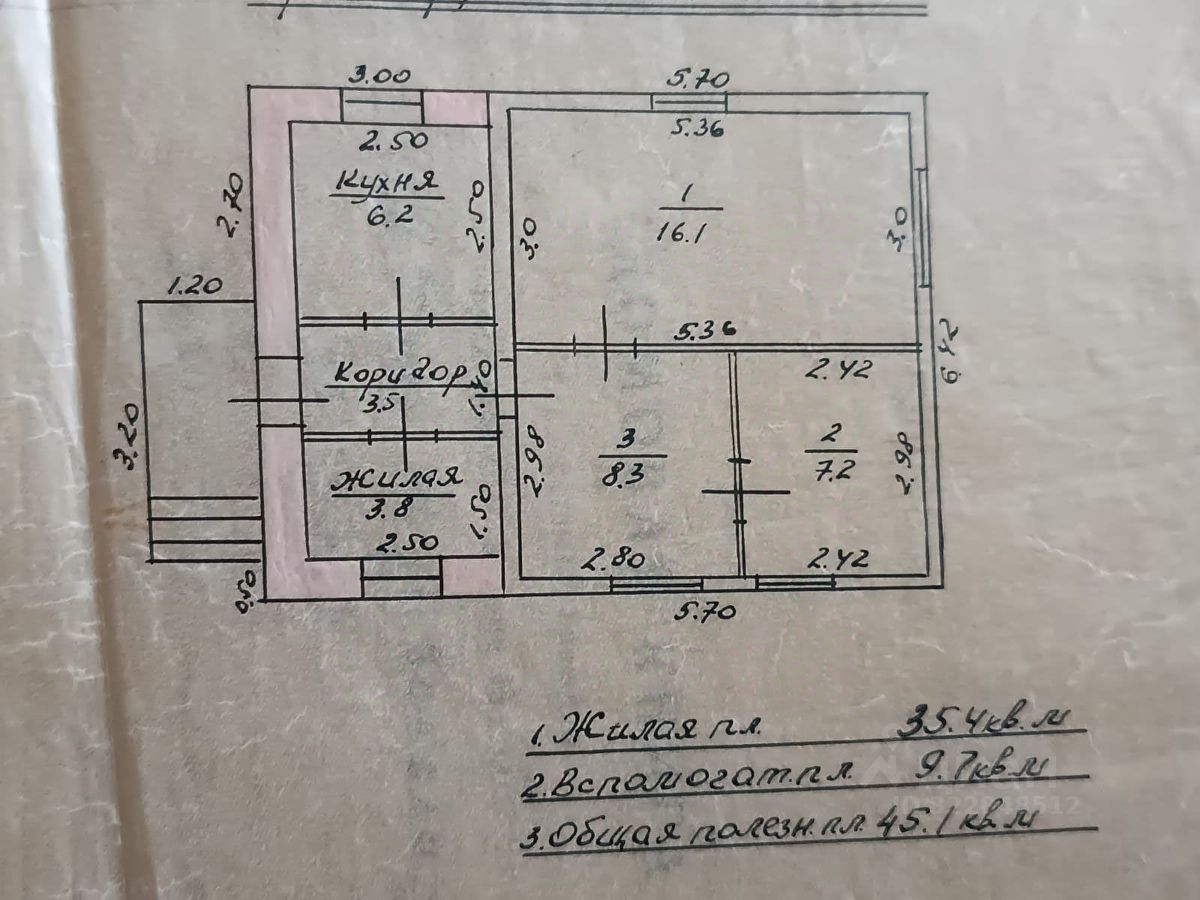 3.00
5.70
2.50
5.36
Кухня
6.2
2.70
2.50
1
16.1
3.0
3.0
1.20
5.36
6.42
2.42
Коридор
3.5
3.20
3
8.3
2
7.2
2.98
2.98
Жилая
3.8
1.50
2.50
2.80
2.42
0.50
5.70
1. Жилая пл. 35.4 кв.м
2. Вспомогат. пл. 9.7 кв.м
3. Общая полезн. пл. 45.1 кв.м